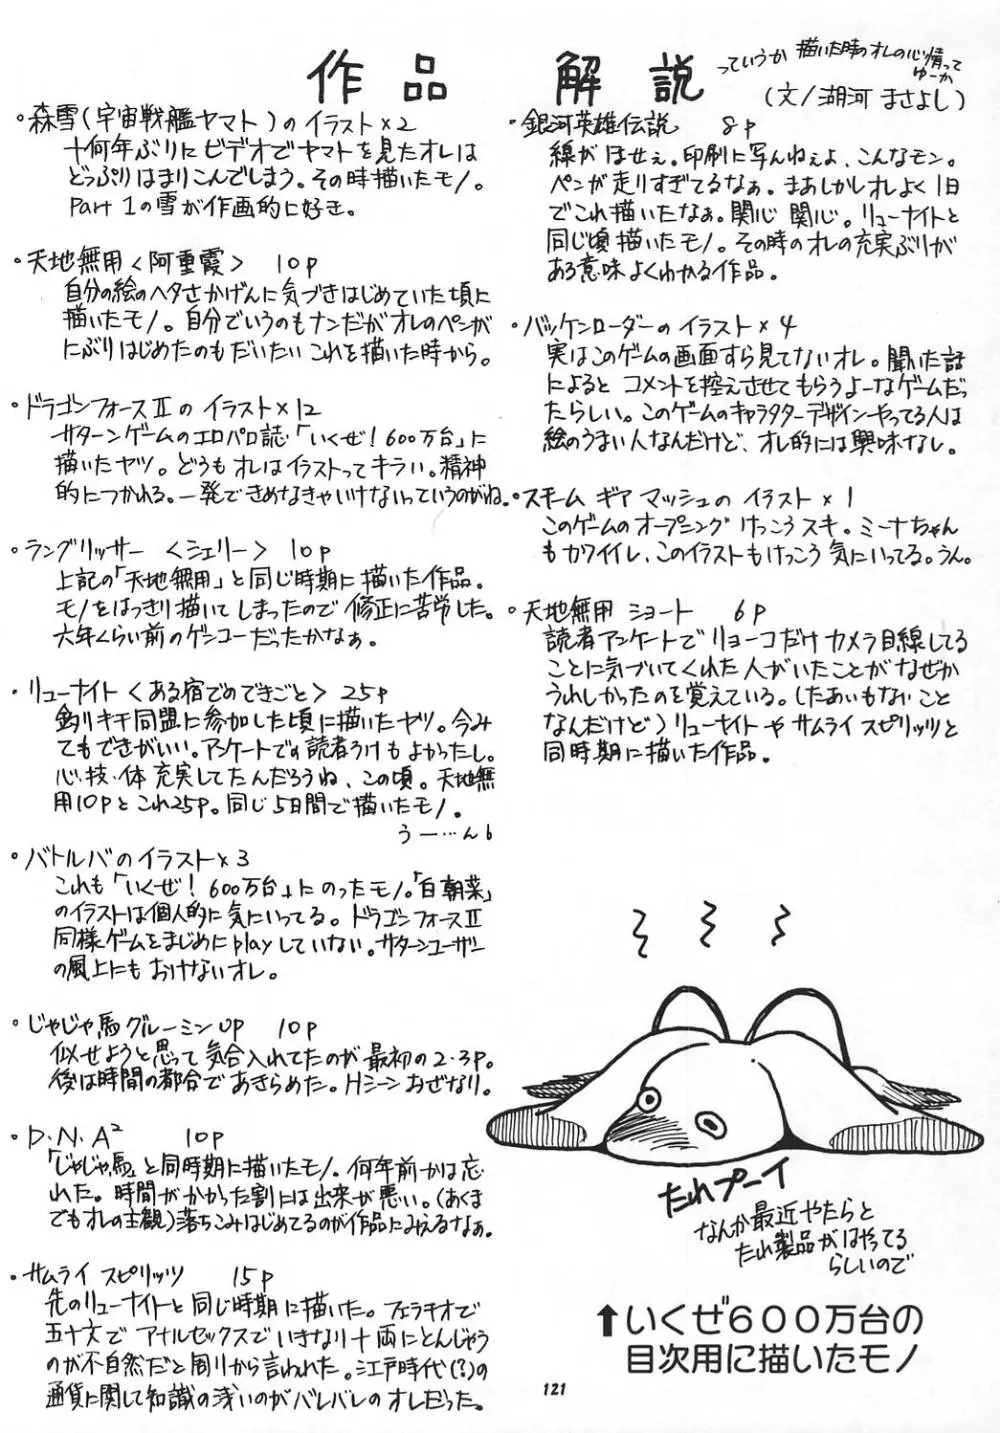 作品 解説
っていうか 描いた時のオレの心情って
ゆーか
(文/湖河 まさよし)
・森雪(宇宙戦艦ヤマト)の イラスト×2
十何年ぶりに ビデオで ヤマトを見たオレは
どっぷりはまりこんでしまう。その時描いたモノ。
Part 1の雪が作画的に好き。
・天地無用〈阿重霞〉 10P
自分の絵のヘタさかげんに気づきはじめていた頃に
描いたモノ。自分でいうのもナンだがオレのペンが
にぶりはじめたのもだいたい これを描いた時から。
・ドラゴンフォースⅡの イラスト×12
サターンゲームのエロパロ誌・「いくぜ!600万台」に
描いたヤツ。どうも オレはイラストってキライ。精神
的につかれる。一発できめなきゃいけないっていうのがね。
・ラングリッサー 〈シェリー〉 10P
上記の「天地無用」と同じ時期に描いた作品。
モノをはっきり描いてしまったので 修正に苦労した。
六年くらい前のゲンコーだったかなぁ。
・リューナイト〈ある宿でのできごと〉25P
釣りキチ同盟に参加した頃に描いたヤツ。今み
てもできがいい。アンケートでの読者うけもよかったし。
心・技・体 充実してたんだろうね、この頃。天地無
用10Pとこれ25P。同じ5日間で描いたモノ。
うー…ん6
・バトルバのイラスト×3
これも「いくぜ!600万台」にのったモノ。「白朝菜」
のイラストは個人的に気にいってる。ドラゴンフォースⅡ
同様ゲームをまじめにplayしていない。サターンユーザー
の風上にもおけないオレ。
・じゃじゃ馬グルーミンUP 10P
似せようと思って気合入れてたのが最初の2・3P。
後は時間の都合であきらめた。Hシーンおざなり。
・D・N・A² 10P
「じゃじゃ馬」と同時期に描いたモノ。何年前かは忘
れた。時間がかかった割には出来が悪い。(あくま
でもオレの主観)落ちこみはじめてるのが作品にみえるなぁ。
・サムライ スピリッツ 15P
先のリューナイトと同じ時期に描いた。フェラチオで
五十文で アナルセックスでいきなり十両にとんじゃう
のが不自然だと周りから言われた。江戸時代(?)の
通貨に関して知識の浅いのがバレバレのオレだった。
・銀河英雄伝説 8P
線がほせぇ。印刷に写んねぇよ、こんなモン。
ペンが走りすぎてるなぁ。まあしかしオレよく1日
でこれ描いたなぁ。関心 関心。リューナイトと
同じ頃描いたモノ。その時のオレの充実ぶりが
ある意味よくわかる作品。
・バッケンローダーの イラスト×4
実はこのゲームの画面すら見てないオレ。聞いた話
によると コメントを控えさせてもらうよーなゲームだっ
たらしい。このゲームのキャラクターデザインやってる人は
絵のうまい人なんだけど、オレ的には興味なし。
・スチーム ギア マッシュの イラスト×1
このゲームのオープニング けっこうスキ。ミーナちゃん
もカワイイし、このイラストもけっこう気にいってる。うん。
・天地無用 ショート 6P
読者アンケートで リョーコだけ カメラ目線してる
ことに気づいてくれた人がいたことがなぜか
うれしかったのを覚えている。(たあいもないこと
なんだけど)リューナイトや サムライ スピリッツと
同時期に描いた作品。
たれプーイ
なんか最近やたらと
たれ製品がはやってる
らしいので
↑いくぜ600万台の
目次用に描いたモノ
121